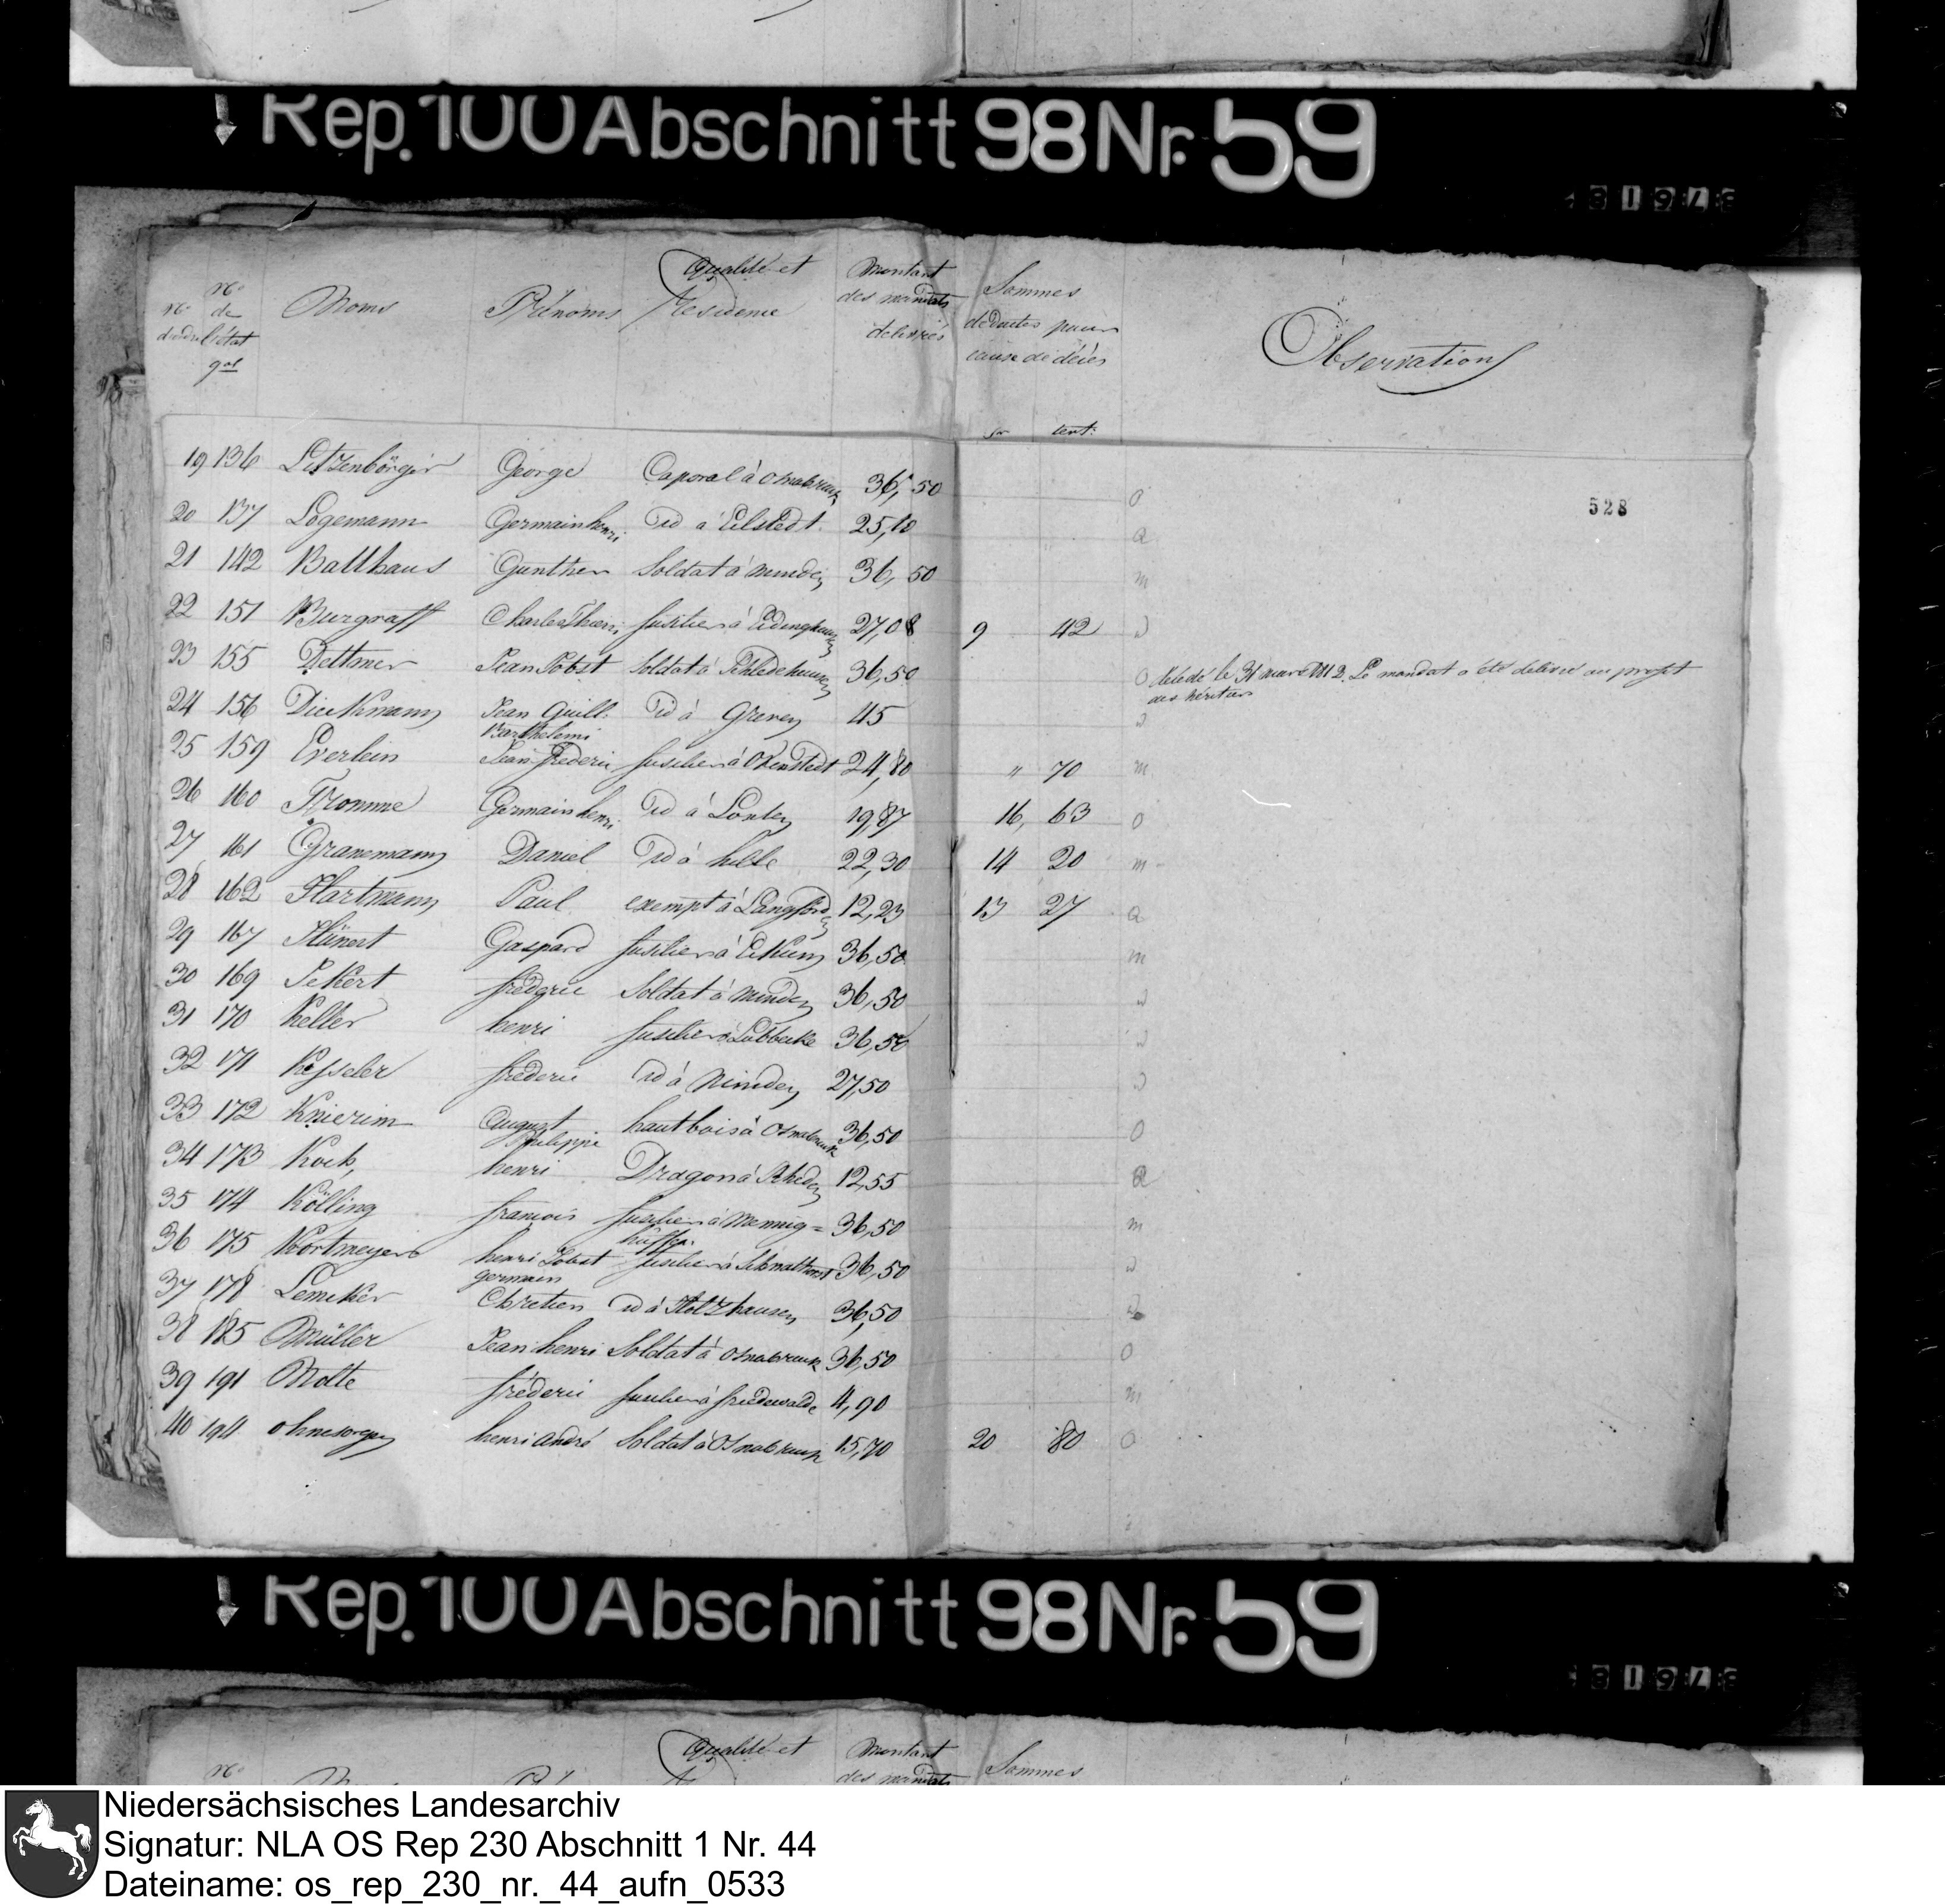 Rep. 100 Abschnitt 98 Nr. 59
Nº d'ordre Nº de l'état gal Noms Prénoms Qualité et Residence Montant des mandats delivrés Sommes déduites pour cause de décès Observations
fr cent:
528
19 136 Letzenbörger George Caporal à Osnabruck 36,50 O
20 137 Logemann Germain henri id à Eilstedt 25,10 Q
21 142 Balthaus Gunther Soldat à Minden 36,50 m
22 151 Burgraff Charles Thierri fusilier à 27,08 9 42
23 155 Dettmer Jean Jobst Soldat à Schledehausen 36,50 O décédé le 31 mars 1812. Le mandat a été délivré au profit
des héritiers
24 156 Dieckmann Jean Guill: Barthelemi id à Greven 45
25 159 Everlein Jean frederic fusilier à 24,80 " 70 m
26 160 Fromme Germain henri id à Lonten 19,87 16, 63 O
27 161 Granemann Daniel id à hille 22,30 14 20 m
28 162 Hartmann Paul exempt à 12,23 13 27 Q
29 167 Hünert Gaspard fusilier à Eikum 36,50 m
30 169 Jekert fréderic Soldat à Minden 36,50
31 170 Keller henri fusilier à Lubbecke 36,50
32 171 Kesseler fréderic id à Minden 27,50
33 172 Knierim August Philippe hautbois à Osnabruck 36,50 O
34 173 Kock, henri Dragon à Rheden 12,55 Q
35 174 Kölling francois fusilier à Mennig=hüffen 36,50 m
36 175 Kortmeyer henri Jobst germain fusilier à Schnathorst 36,50
37 178 Lemcker Chretien id à Holzhausen 36,50
38 185 Müller Jean henri Soldat à Osnabruck 36,50 O
39 191 Nolte fréderic fusilier à friedewalde 4,90 m
40 194 Ohnesorgen henri André Soldat à Osnabruck 15,70 20 80 O
Rep. 100 Abschnitt 98 Nr. 59
Qualité et Montant des mandats Sommes
Niedersächsisches Landesarchiv
Signatur: NLA OS Rep 230 Abschnitt 1 Nr. 44
Dateiname: os_rep_230_nr._44_aufn_0533